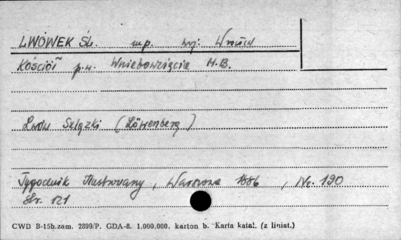 LWÓWEK Śl. w.p. woj. Wrocław
Kościół p.w. Wniebowzięcia M.B.
Lwów Śląski (Löwenberg)
Tygodnik Ilustrowany, Warszawa 1886, Nr. 190
Str. 121
CWD B-15b.zam. 2899/P. GDA-8. 1.000.000. karton b. Karta katal. (z liniat.)